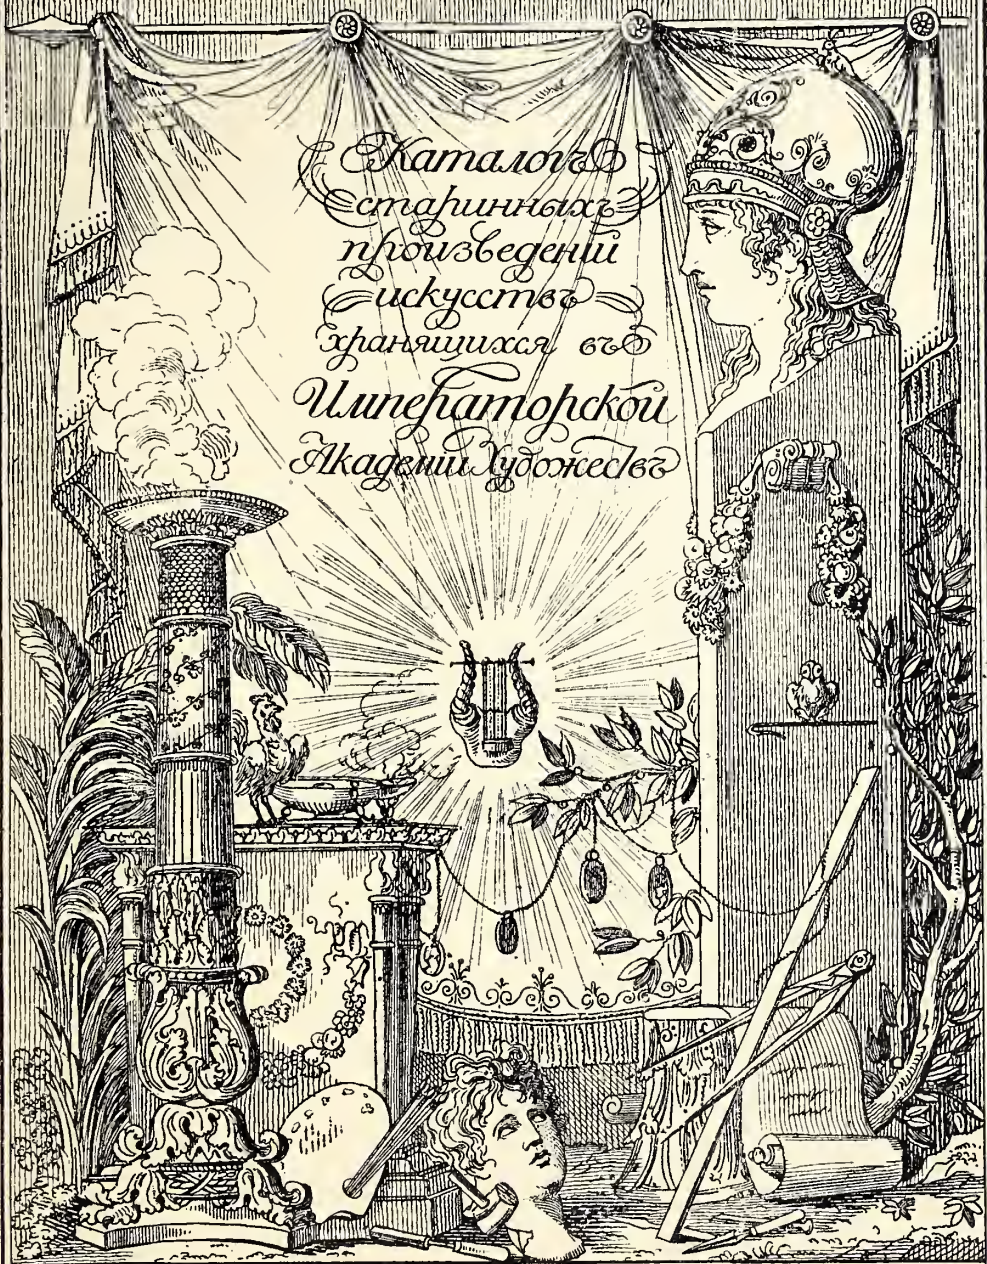 Каталогъ
старинныхъ
произведеній
искусствъ
хранящихся въ
Императорской
Академіи Художествъ